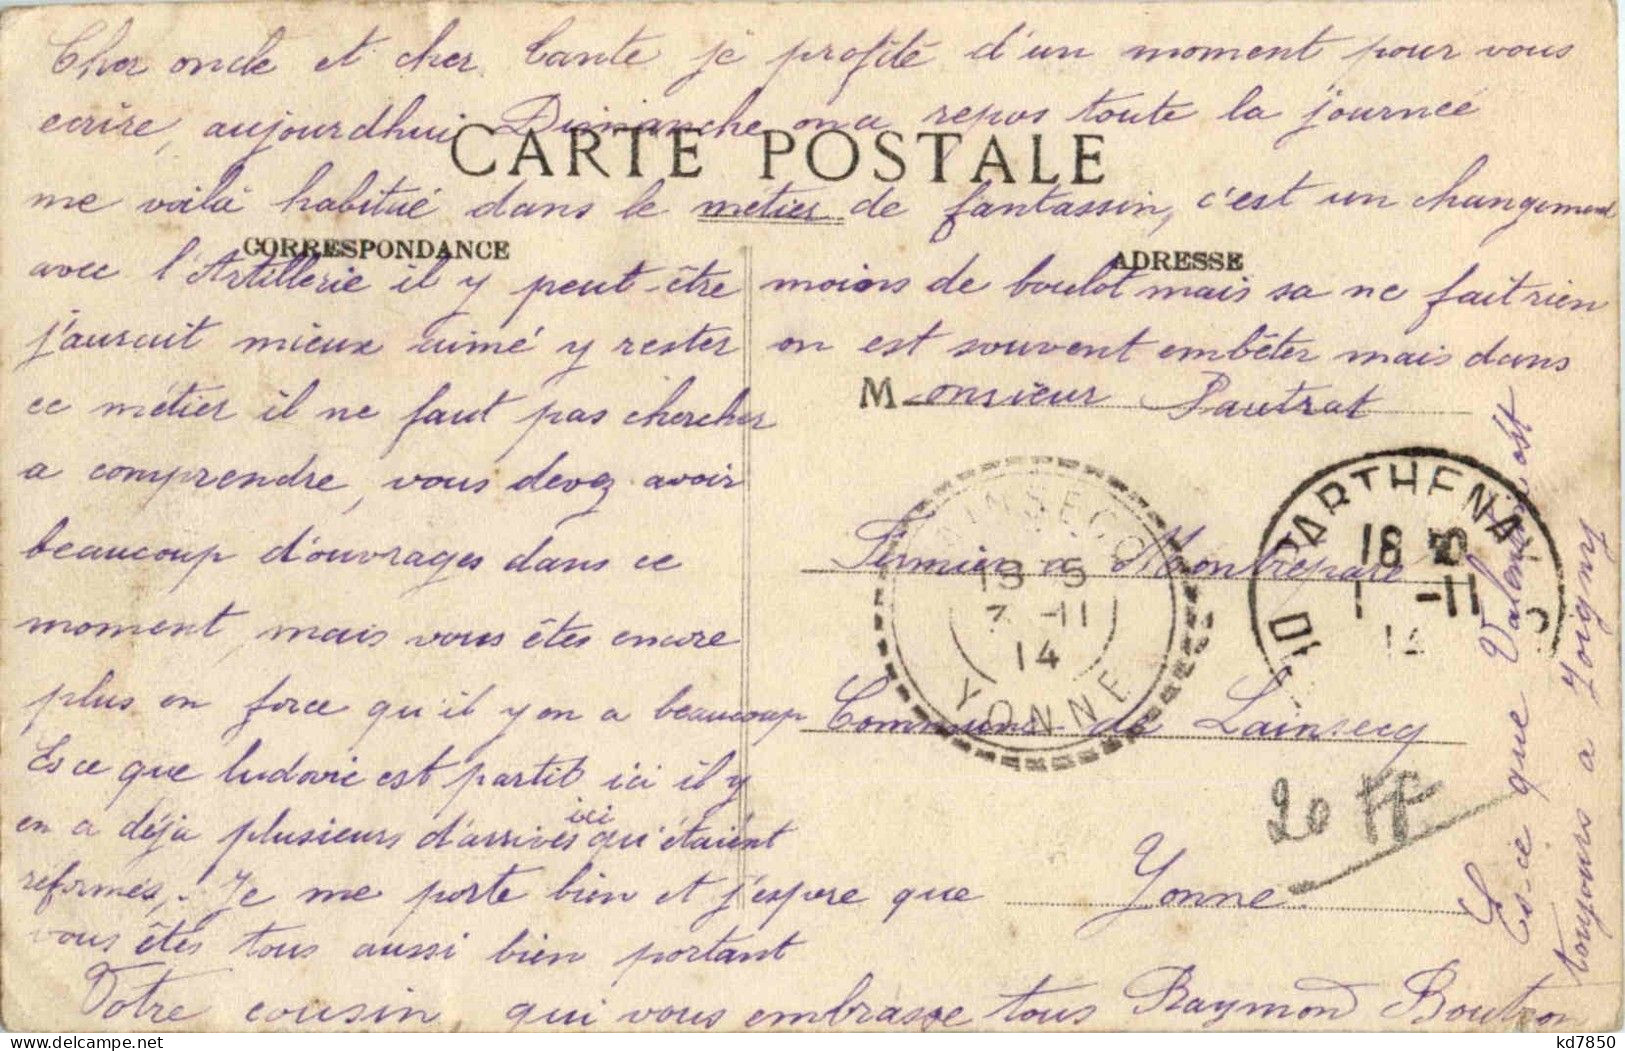 Cher oncle et cher tante je profite d'un moment pour vous
ecrire, aujourdhui Dimanche on a repos toute la journée
CARTE POSTALE
me voilà habitué dans le métier de fantassin, c'est un changement
CORRESPONDANCE
ADRESSE
avec l'Artillerie il y peut-être moions de boulot mais sa ne fait rien
j'aurait mieux aimé y rester on est souvent embêter mais dans
ce métier il ne faut pas chercher
a comprendre, vous devez avoir
beaucoup d'ouvrages dans ce
moment, mais vous êtes encore
plus en force qu'il y en a beaucoup
Es ce que ludovic est partit ici il y
en a déja plusieurs d'arrivés ici qu'étaient
réformés, Je me porte bien et j'espere que
vous êtes tous aussi bien portant
Votre cousin qui vous embrasse tous Raymond Boutron
Monsieur Pautrat
Fermier a Montrepare
Commune de Lainsecq
Yonne
LAINSECQ
19 5
7 -11
14
YONNE
PARTHENAY
18
1 -11
14
20 FF
Es-ce que Valentin est
toujours a Joigny
kd7850